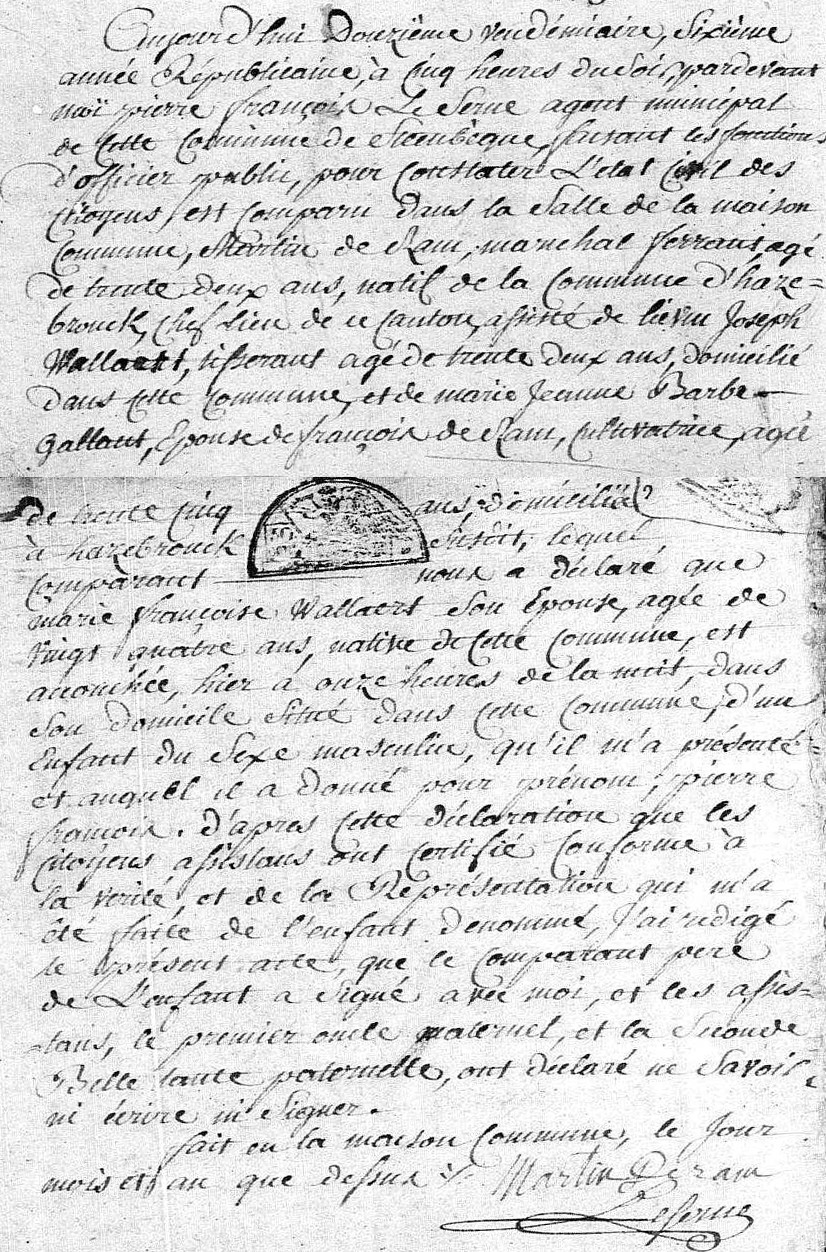 Aujourd'hui Douzième vendémiaire, Sixième
année Républicaine, à Cinq heures du Soir, pardevant
moi pierre françois Le Serne agent municipal
de Cette Commune de Steenbèque, faisant les fonctions
d'officier public, pour Constater L'état Civil des
Citoyens, est Comparu dans la Salle de la maison
Commune, Martin de Ram, maréchal ferrant, agé
de trente deux ans, natif de la Commune d'haze=
brouck, Chef lieu de ce Canton, assisté de liévin Joseph
Wallaert, tisserant agé de trente deux ans, domicilié
dans cette Commune, et de marie Jeanne Barbe
gallant, Epouse de françois de Ram, Cultivatrice, agée
de trente Cinq ans, domiciliée
à hazebrouck Susdit, lequel
Comparant nous a déclaré que
marie françoise Wallaert Son Epouse, agée de
vingt quatre ans, native de Cette Commune, est
accouchée, hier à onze heures de la nuit, dans
Son Domicile Situé dans cette Commune, d'un
Enfant du Sexe masculin, qu'il m'a présenté=
et auquel il a donné pour prénom, pierre
françois. d'apres Cette déclaration que les
Citoÿens assistans ont Certifié Conforme à
la vérité, et de la Représentation qui m'a
été faite de l'enfant denommé, J'ai redigé
le présent acte, que le Comparant pere
de L'enfant a Signé avec moi, et les assis=
=tans, le premier oncle maternel, et la Seconde
Belle tante paternelle, ont déclaré ne Savoir
ni écrire ni Signer.
fait en la maison Commune, le Jour
mois et an que dessus Martin De ram
Leserne